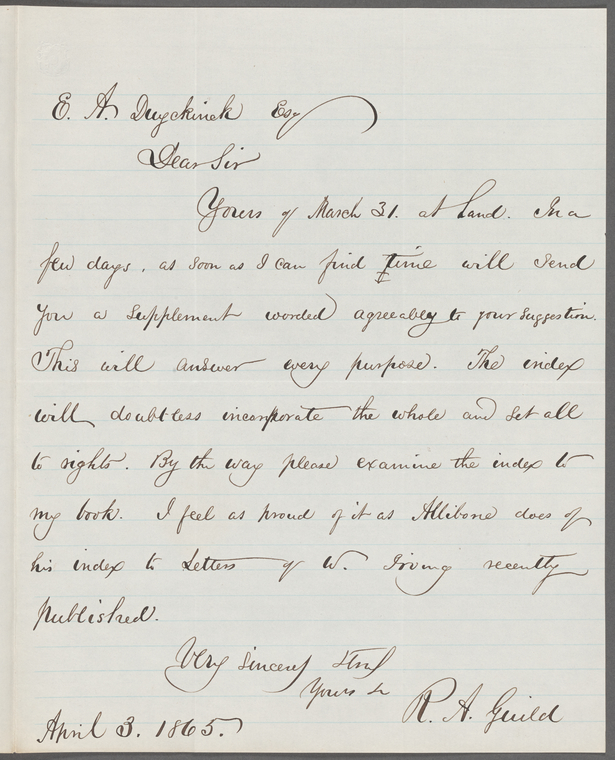 E. A. Duyckinck Esq
Dear Sir
Yours of March 31. at hand. In a
few days, as soon as I can find time will send
you a supplement worded agreeably to your suggestion.
This will answer every purpose. The index
will doubtless incorporate the whole and set all
to rights. By the way please examine the index to
my book. I feel as proud of it as Allibone does of
his index to Letters of W. Irving recently
published.
Very sincerely
Yours
R. A. Guild
April 3. 1865.